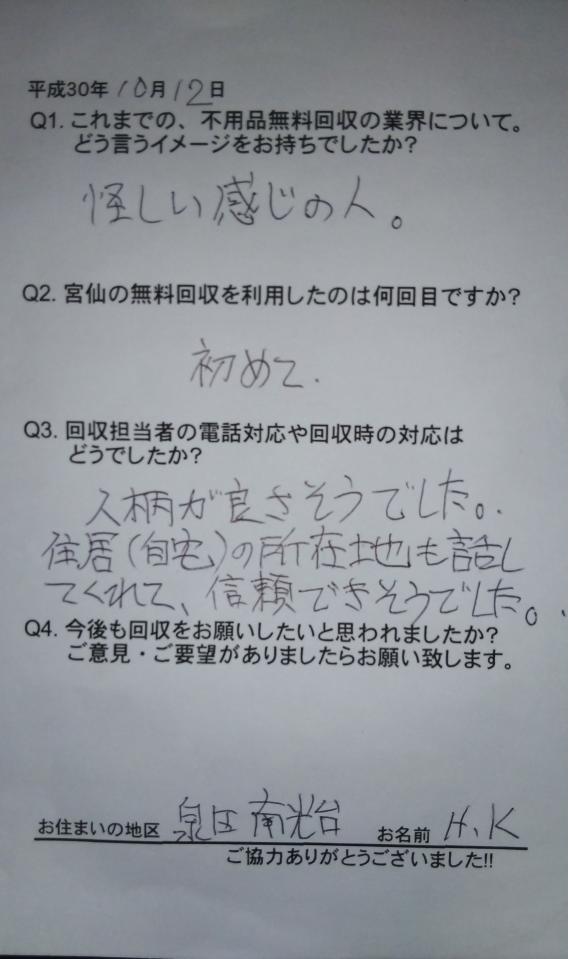 平成30年10月12日
Q1. これまでの、不用品無料回収の業界について。
どう言うイメージをお持ちでしたか?
怪しい感じの人。
Q2. 宮仙の無料回収を利用したのは何回目ですか?
初めて.
Q3. 回収担当者の電話対応や回収時の対応は
どうでしたか?
人柄が良さそうでした。
住居(自宅)の所在地も話し
てくれて、信頼できそうでした。
Q4. 今後も回収をお願いしたいと思われましたか?
ご意見・ご要望がありましたらお願い致します。
お住まいの地区 泉区南光台 お名前 H.K
ご協力ありがとうございました!!